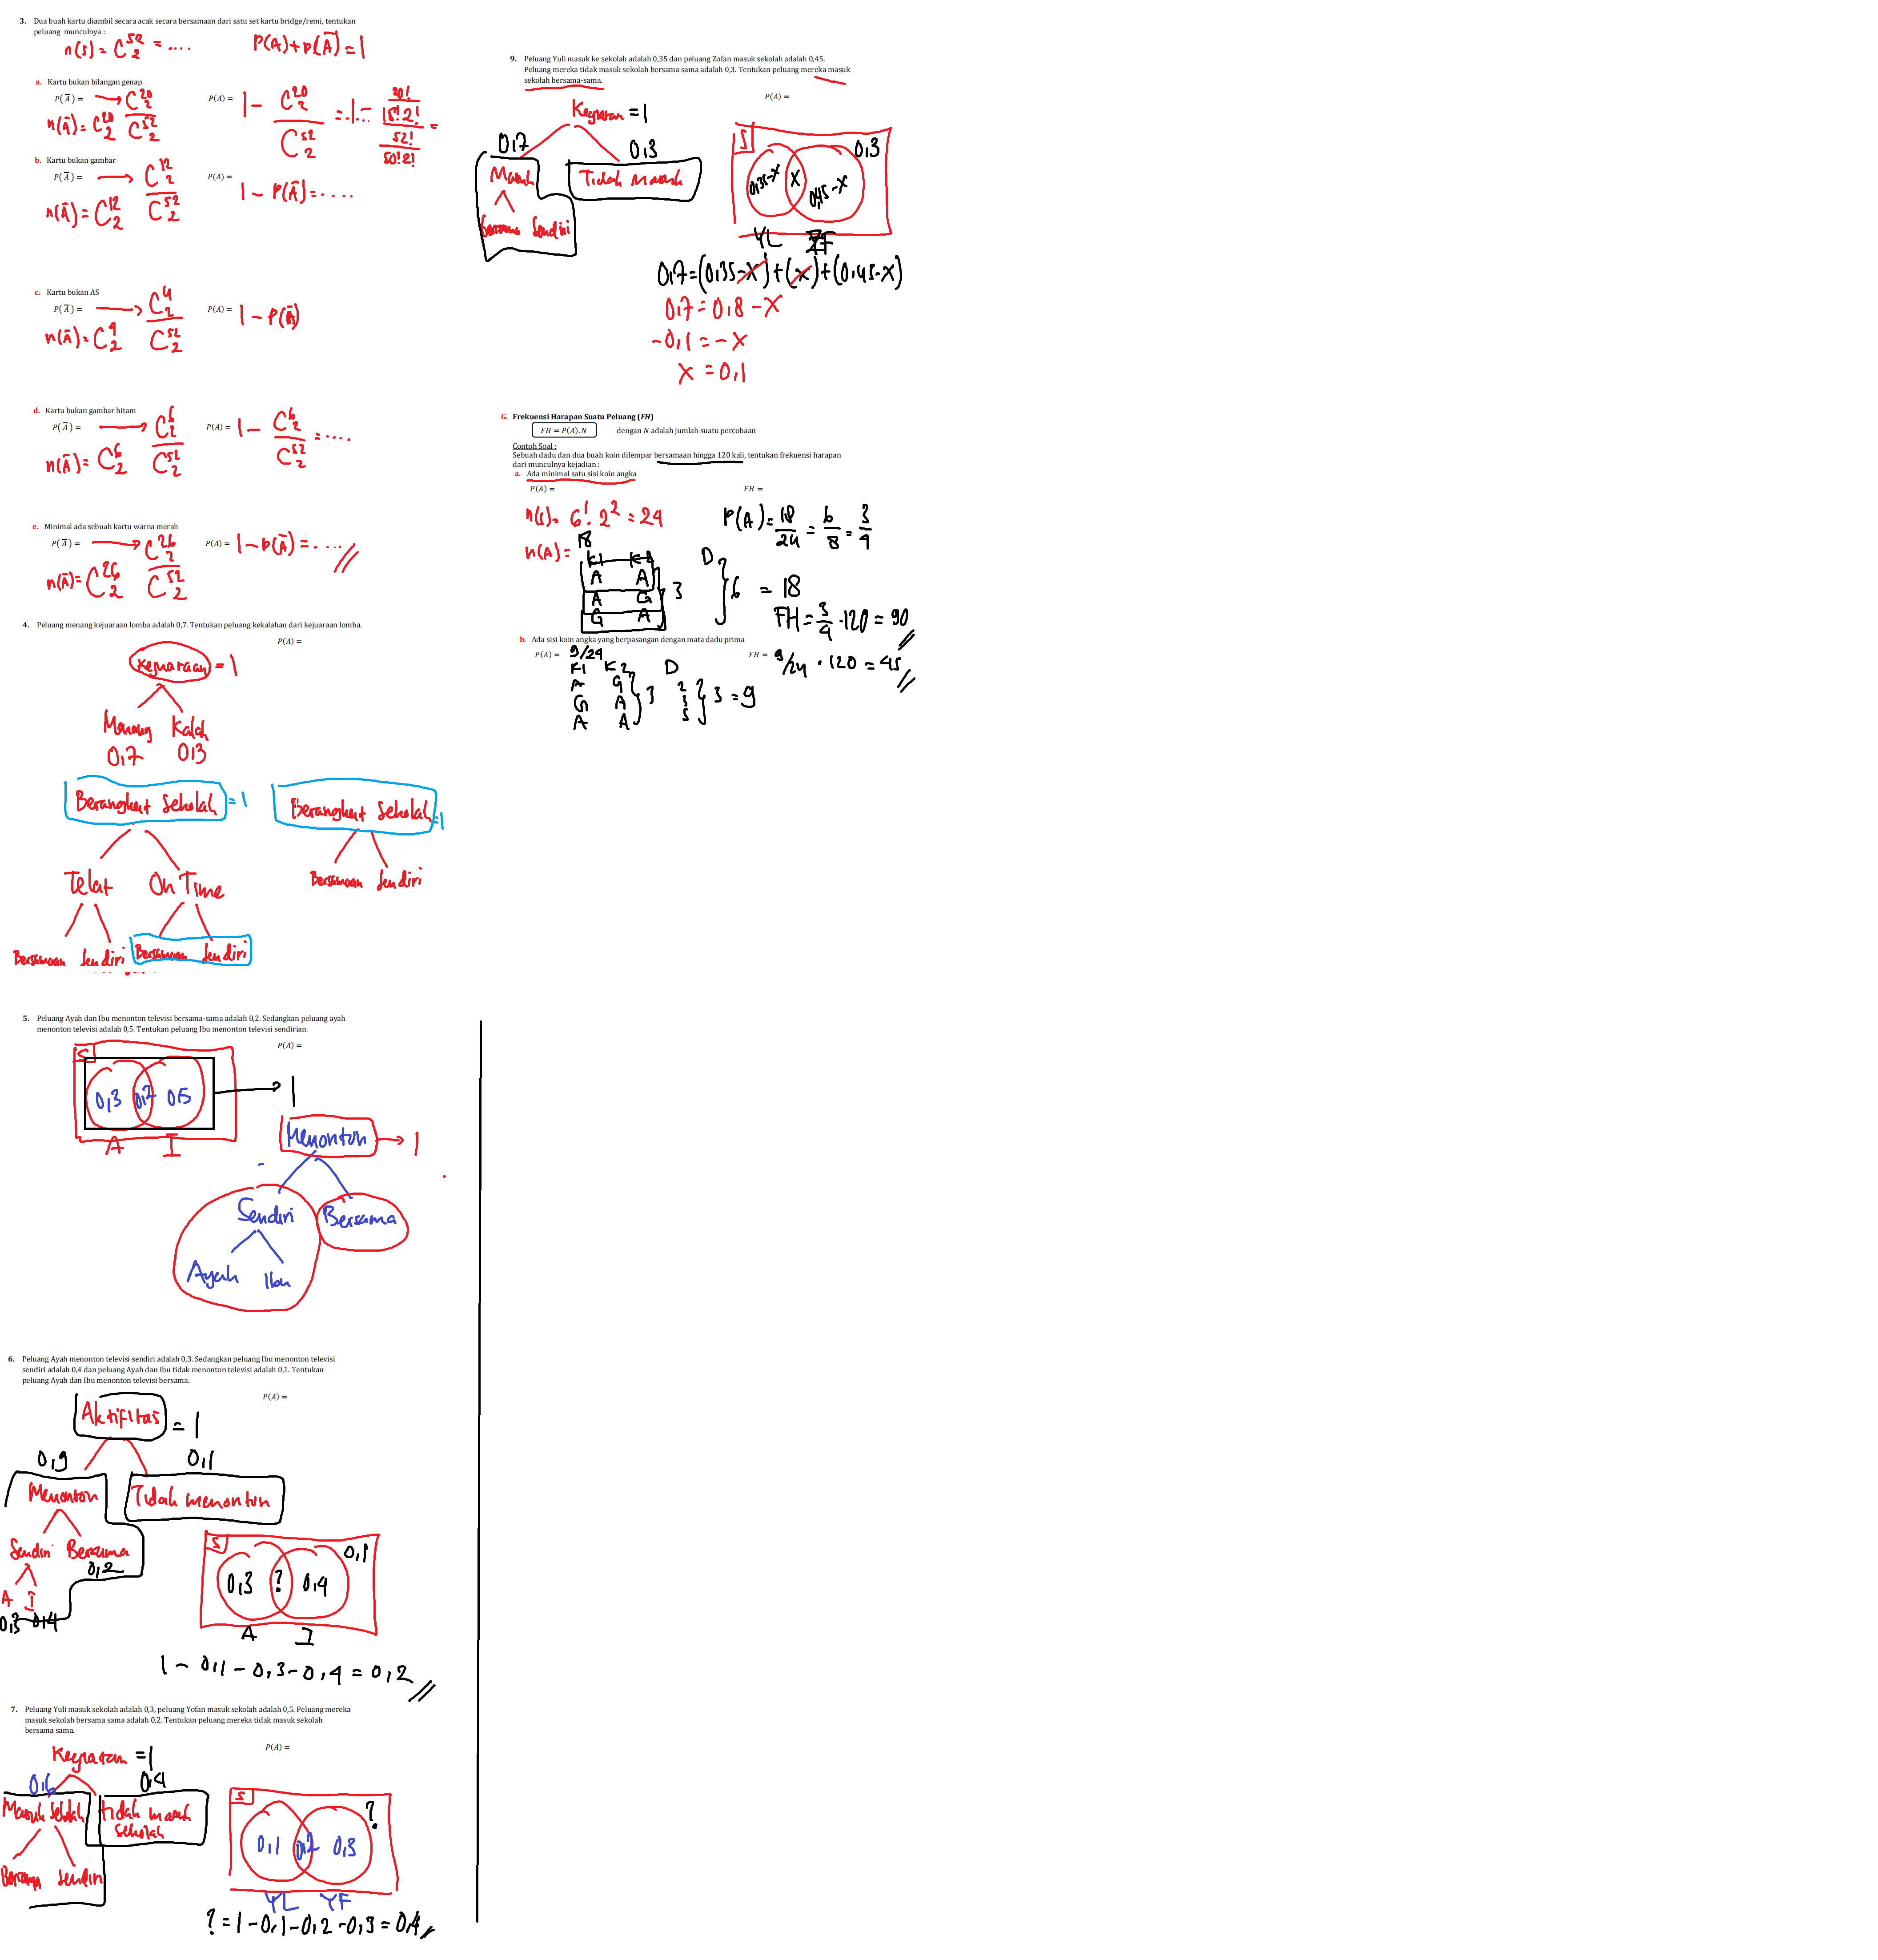 3. Dua buah kartu diambil secara acak secara bersamaan dari satu set kartu bridge/remi, tentukan
peluang munculnya :
n(s) = C⁵²₂ = .... P(A)+P(A̅) = 1
a. Kartu bukan bilangan genap
P(A̅) = → C²⁰₂ / C⁵²₂ P(A) = 1 - C²⁰₂ / C⁵²₂ = 1 - (20! / 18!2!) / (52! / 50!2!) =
n(A̅) = C²⁰₂
b. Kartu bukan gambar
P(A̅) = → C¹²₂ / C⁵²₂ P(A) = 1 - P(A̅) = ....
n(A̅) = C¹²₂
c. Kartu bukan AS
P(A̅) = → C⁴₂ / C⁵²₂ P(A) = 1 - P(A̅)
n(A̅) = C⁴₂
d. Kartu bukan gambar hitam
P(A̅) = → C⁶₂ / C⁵²₂ P(A) = 1 - C⁶₂ / C⁵²₂ = ....
n(A̅) = C⁶₂
e. Minimal ada sebuah kartu warna merah
P(A̅) = → C²⁶₂ / C⁵²₂ P(A) = 1 - P(A̅) = .... //
n(A̅) = C²⁶₂
4. Peluang menang kejuaraan lomba adalah 0,7. Tentukan peluang kekalahan dari kejuaraan lomba.
P(A) =
Kejuaraan = 1
Menang Kalah
0,7 0,3
Berangkat Sekolah = 1 Berangkat Sekolah = 1
Telat On Time Bersamaan Sendiri
Bersamaan Sendiri Bersamaan Sendiri
5. Peluang Ayah dan Ibu menonton televisi bersama-sama adalah 0,2. Sedangkan peluang ayah
menonton televisi adalah 0,5. Tentukan peluang Ibu menonton televisi sendirian.
P(A) =
S
0,3 0,2 0,5 → 1
A I
Menonton → 1
Sendiri Bersama
Ayah Ibu
6. Peluang Ayah menonton televisi sendiri adalah 0,3. Sedangkan peluang Ibu menonton televisi
sendiri adalah 0,4 dan peluang Ayah dan Ibu tidak menonton televisi adalah 0,1. Tentukan
peluang Ayah dan Ibu menonton televisi bersama.
P(A) =
Aktifitas = 1
0,9 0,1
Menonton Tidak menonton
Sendiri Bersama
0,2
A I
0,3 0,4
S 0,1
0,3 ? 0,4
A I
1 - 0,1 - 0,3 - 0,4 = 0,2 //
7. Peluang Yuli masuk sekolah adalah 0,3, peluang Yofan masuk sekolah adalah 0,5. Peluang mereka
masuk sekolah bersama sama adalah 0,2. Tentukan peluang mereka tidak masuk sekolah
bersama sama.
P(A) =
Kegiatan = 1
0,6 0,4
Masuk Sekolah tidak masuk
sekolah
Bersama Sendiri
S ?
0,1 0,2 0,3
YL YF
? = 1 - 0,1 - 0,2 - 0,3 = 0,4 //
9. Peluang Yuli masuk ke sekolah adalah 0,35 dan peluang Zofan masuk sekolah adalah 0,45.
Peluang mereka tidak masuk sekolah bersama sama adalah 0,3. Tentukan peluang mereka masuk
sekolah bersama-sama.
P(A) =
Kegiatan = 1
0,7 0,3
Masuk Tidak Masuk
Bersama Sendiri
S 0,3
0,35-x x 0,45-x
YL ZF
0,7 = (0,35-x)+(x)+(0,45-x)
0,7 = 0,8 - x
-0,1 = -x
x = 0,1
G. Frekuensi Harapan Suatu Peluang (FH)
FH = P(A).N dengan N adalah jumlah suatu percobaan
Contoh Soal :
Sebuah dadu dan dua buah koin dilempar bersamaan hingga 120 kali, tentukan frekuensi harapan
dari munculnya kejadian :
a. Ada minimal satu sisi koin angka
P(A) = FH =
n(s) = 6¹. 2² = 24 P(A) = 18/24 = 6/8 = 3/4
n(A) = 18
K1 K2 D
A A
A G } 3 } 6 = 18
G A
FH = 3/4 . 120 = 90 //
b. Ada sisi koin angka yang berpasangan dengan mata dadu prima
P(A) = 9/24 FH = 9/24 . 120 = 45 //
K1 K2 D
A G 2
G A } 3 3 } 3 = 9
A A 5